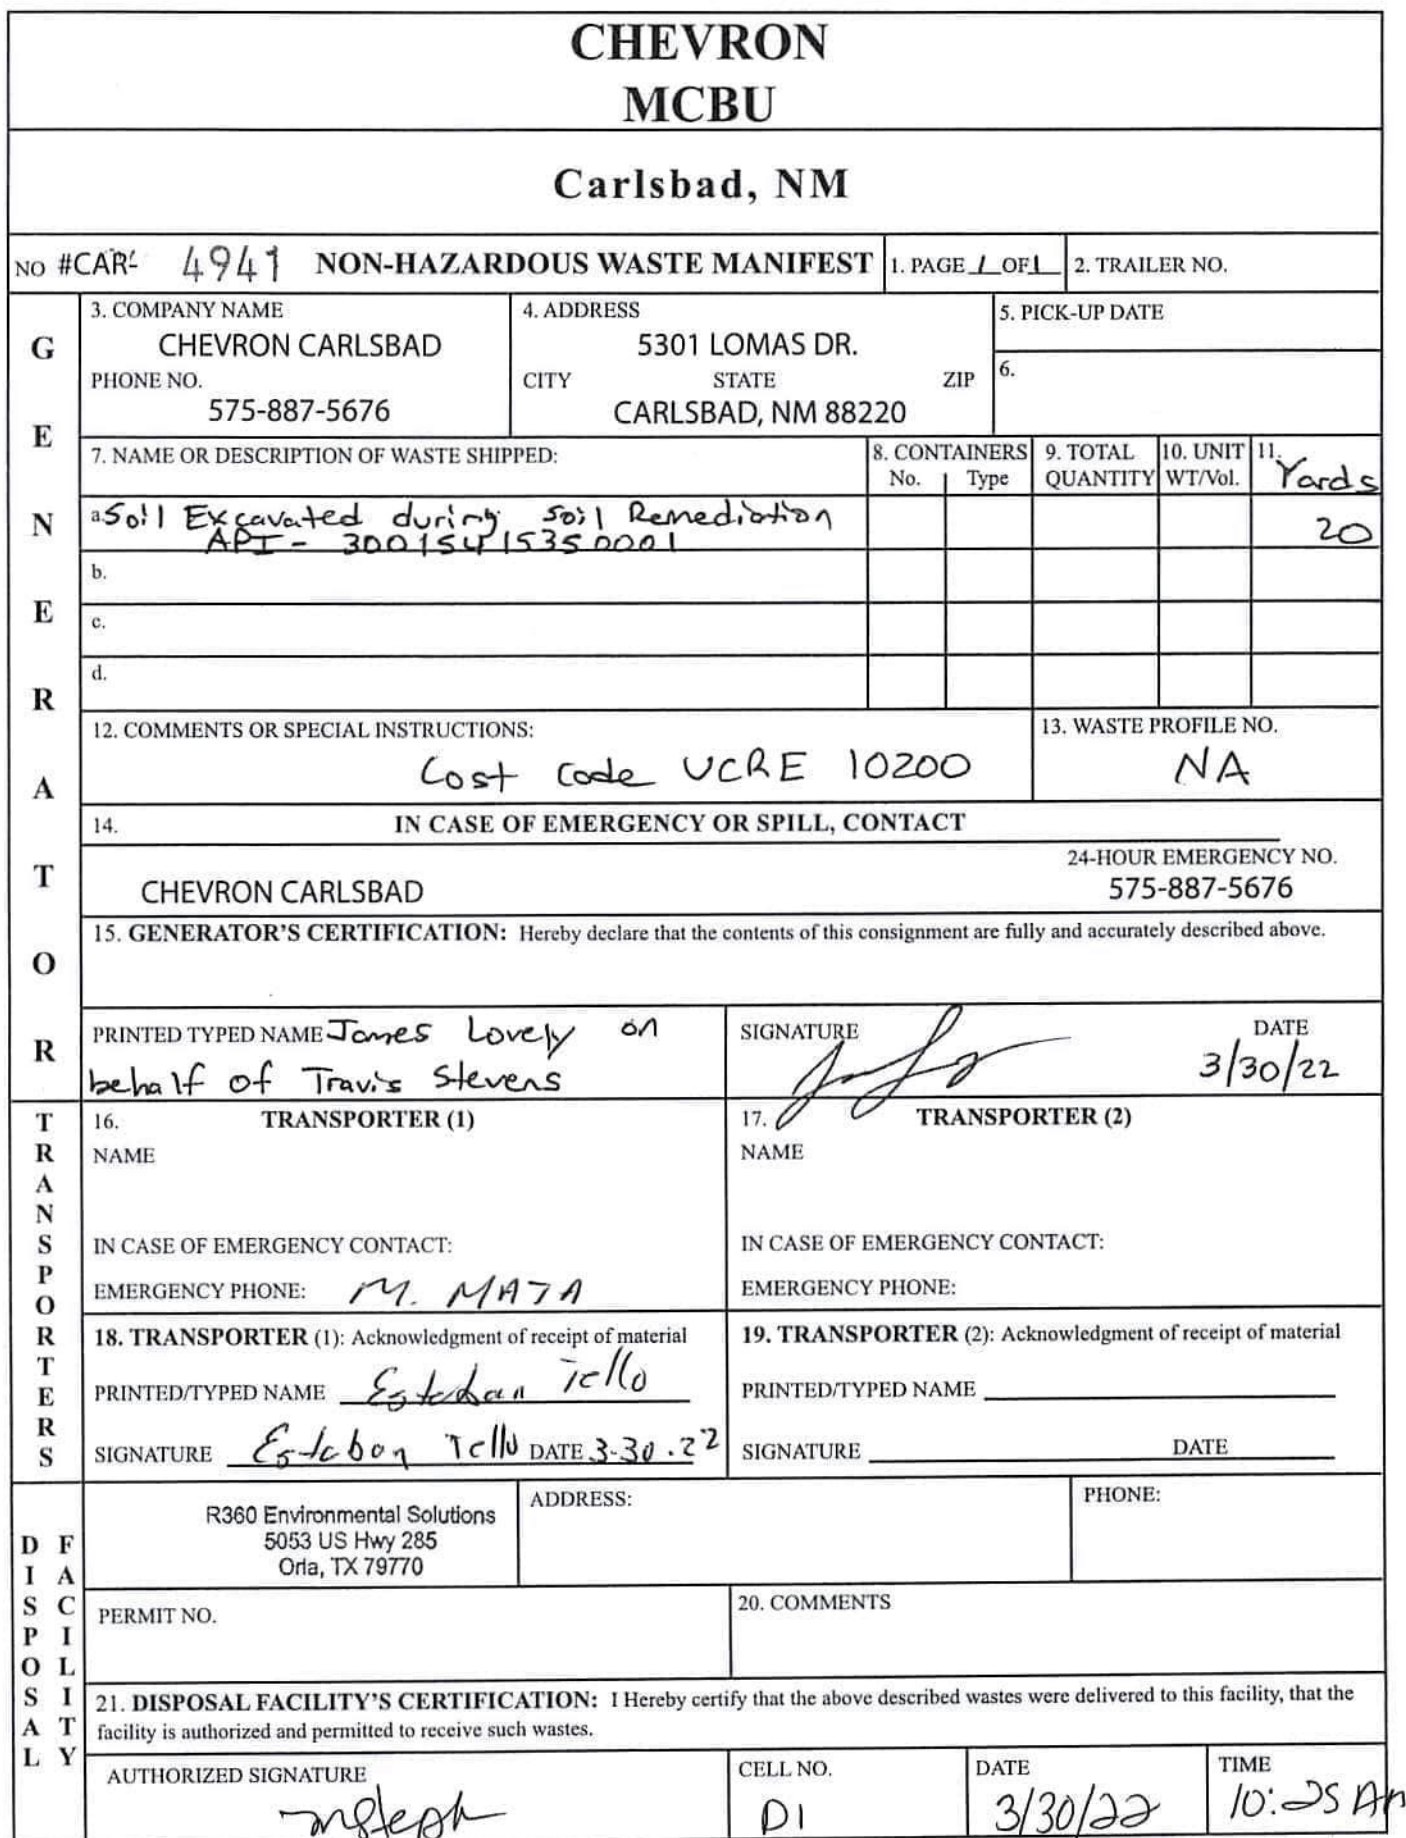 CHEVRON
MCBU
Carlsbad, NM
NO #CAR- 4941 NON-HAZARDOUS WASTE MANIFEST 1. PAGE 1 OF 1 2. TRAILER NO.
GENERATOR
3. COMPANY NAME
CHEVRON CARLSBAD
PHONE NO.
575-887-5676
4. ADDRESS
5301 LOMAS DR.
CITY STATE ZIP
CARLSBAD, NM 88220
5. PICK-UP DATE
6.
7. NAME OR DESCRIPTION OF WASTE SHIPPED:
8. CONTAINERS
No. Type
9. TOTAL
QUANTITY
10. UNIT
WT/Vol.
11. Yards
a. Soil Excavated during Soil Remediation
API - 30015415350001
20
b.
c.
d.
12. COMMENTS OR SPECIAL INSTRUCTIONS:
Cost Code UCRE 10200
13. WASTE PROFILE NO.
NA
14. IN CASE OF EMERGENCY OR SPILL, CONTACT
CHEVRON CARLSBAD
24-HOUR EMERGENCY NO.
575-887-5676
15. GENERATOR'S CERTIFICATION: Hereby declare that the contents of this consignment are fully and accurately described above.
PRINTED TYPED NAME James Lovely on
behalf of Travis Stevens
SIGNATURE
DATE
3/30/22
TRANSPORTERS
16. TRANSPORTER (1)
NAME
IN CASE OF EMERGENCY CONTACT:
EMERGENCY PHONE: M. MATA
17. TRANSPORTER (2)
NAME
IN CASE OF EMERGENCY CONTACT:
EMERGENCY PHONE:
18. TRANSPORTER (1): Acknowledgment of receipt of material
PRINTED/TYPED NAME Esteban Tello
SIGNATURE Esteban Tello DATE 3-30.22
19. TRANSPORTER (2): Acknowledgment of receipt of material
PRINTED/TYPED NAME
SIGNATURE DATE
DISPOSAL FACILITY
R360 Environmental Solutions
5053 US Hwy 285
Orla, TX 79770
ADDRESS:
PHONE:
PERMIT NO.
20. COMMENTS
21. DISPOSAL FACILITY'S CERTIFICATION: I Hereby certify that the above described wastes were delivered to this facility, that the
facility is authorized and permitted to receive such wastes.
AUTHORIZED SIGNATURE
CELL NO.
D1
DATE
3/30/22
TIME
10:25 AM